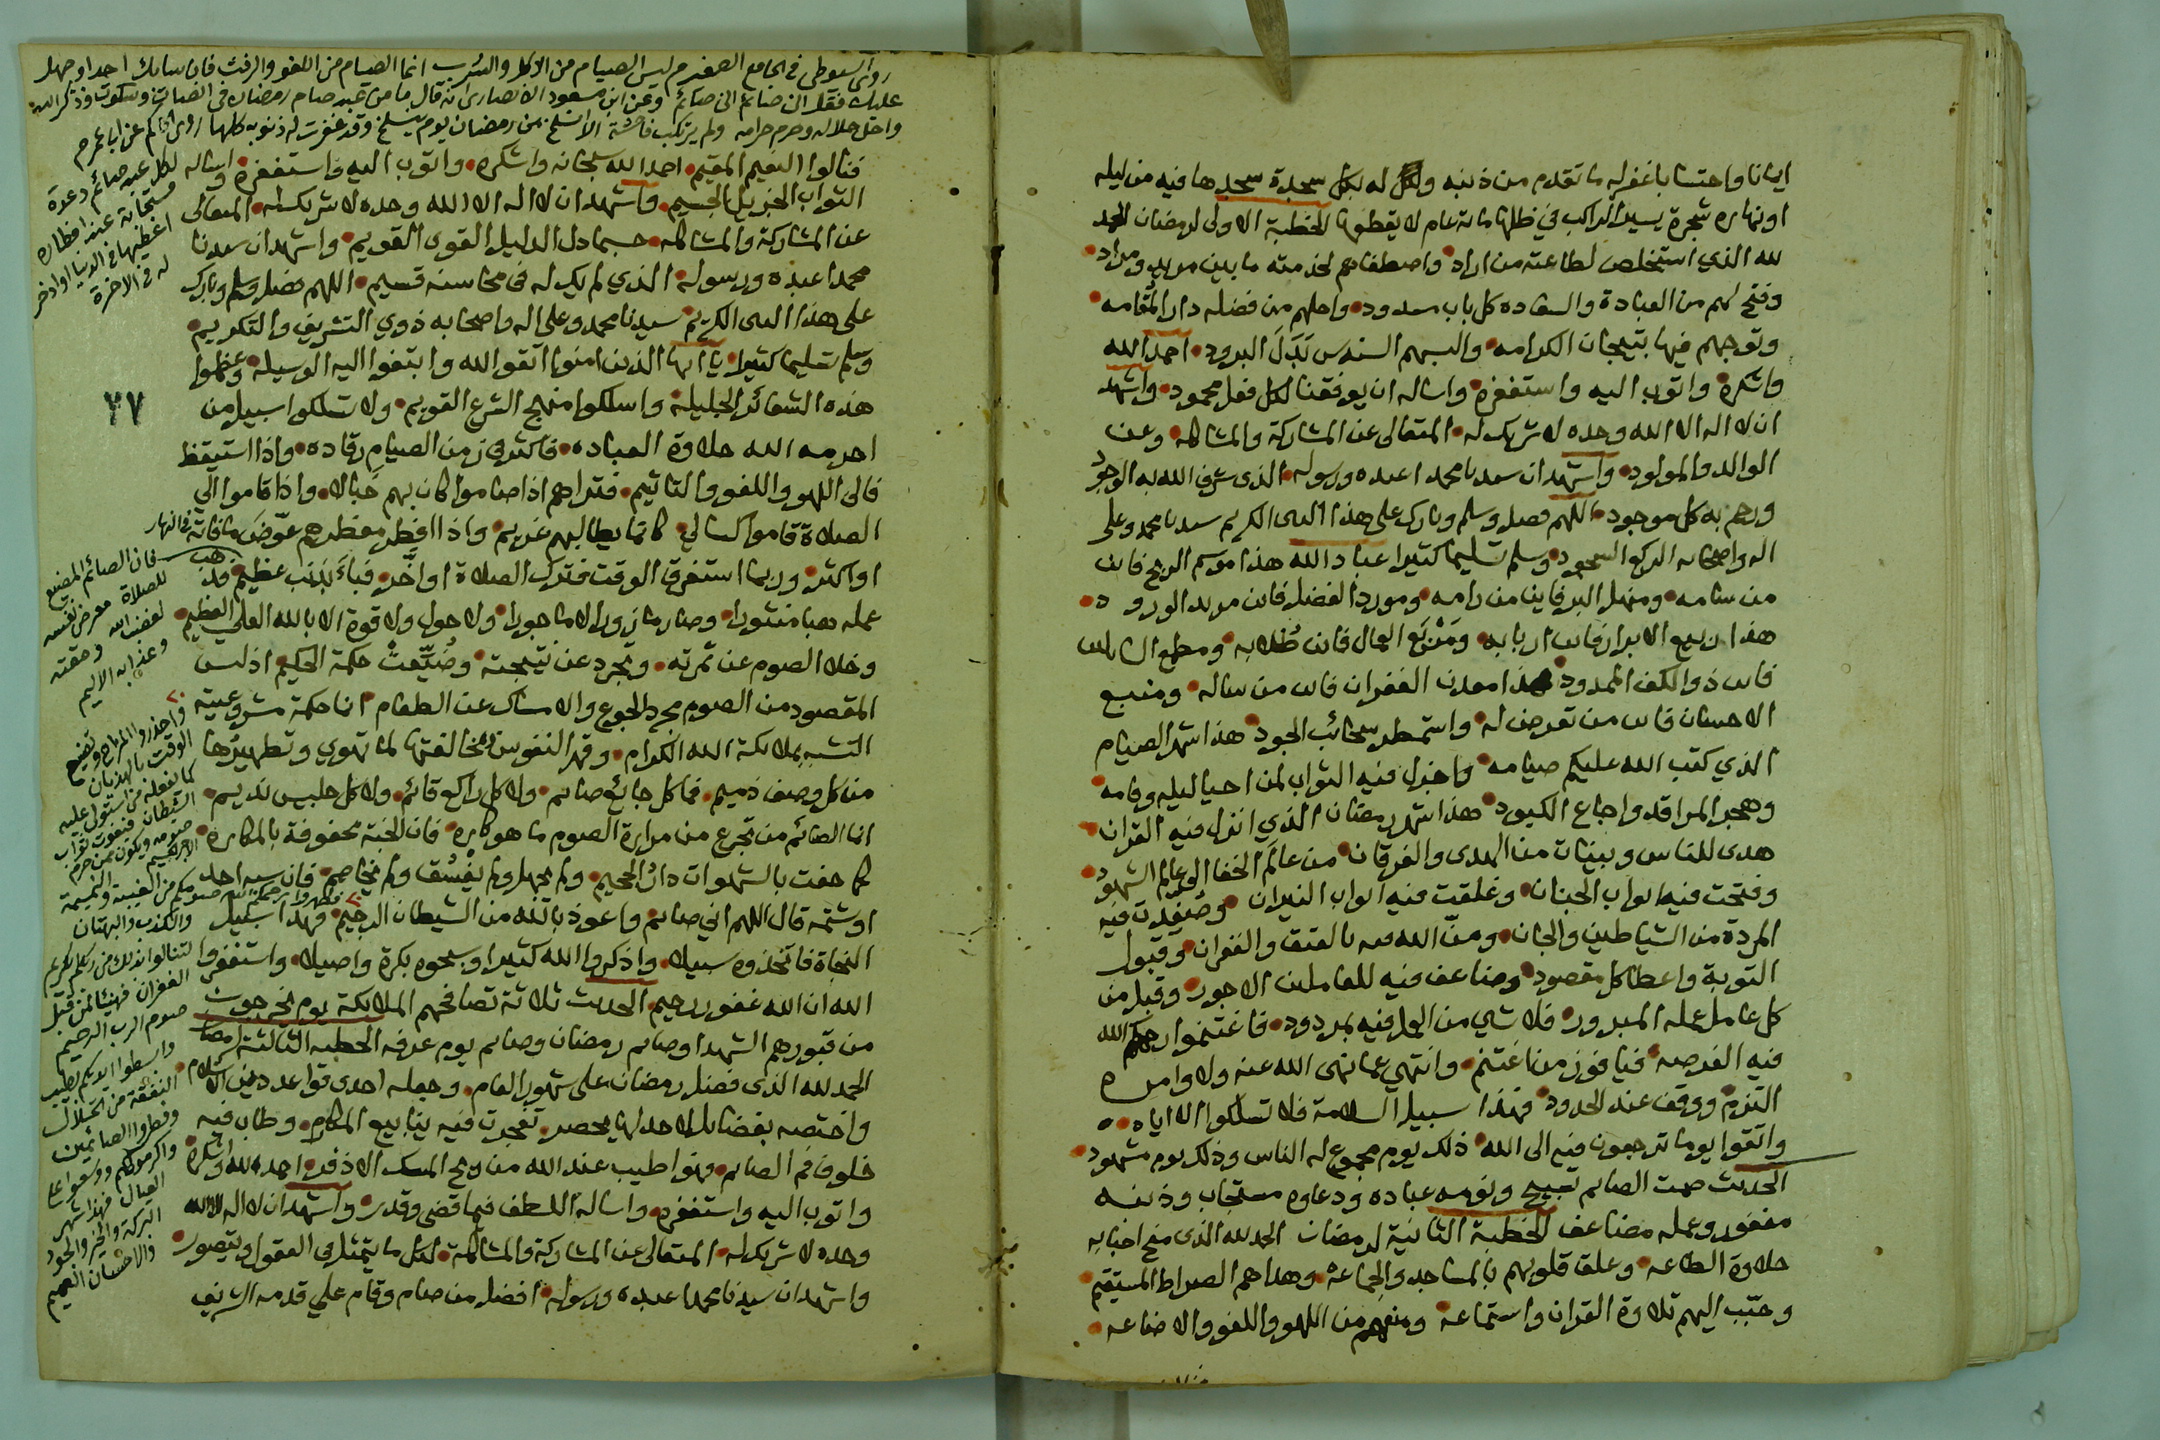 ايمانا واحتسابا غفر له ما تقدم من ذنبه وله بكل سجدة سجدها فيه من ليله
او نهاره شجرة يسير الراكب في ظلها مائة عام لا يقطعها الخطبة الاولى لرمضان الحمد
لله الذي استخلص لطاعته من اراد واصطفاهم لخدمته ما بين مريد ومراد
وفتح لهم من العبادة والسعاده كل باب مسدود واحلهم من فضله دار المقامه
وتوجهم فيها بتيجان الكرامه والبسهم السندس بَدَلَ البرود احمد الله
واشكره واتوب اليه واستغفره واساله ان يوفقنا لكل فعل محمود واشهد
ان لا اله الا الله وحده لا شريك له المتعالى عن المشاركة والمشاكله وعن
الوالد والمولود واشهد ان سيدنا محمدا عبده ورسوله الذى شرف الله به الوجود
ورحم به كل موجود اللهم فصل وسلم وبارك على هذا النبى الكريم سيدنا محمد وعلى
اله واصحابه الركع السجود وسلم تسليما كثيرا عباد الله هذا موسم الربح فاين
من سامه ومنهل البر فاين من رامه ومورد الفضل فاين مريد الورود
هذا ربيع الابرار فاين اربابه ومَرْبَع العمال فاين طُلابه ومطمع السائلين
فاين ذو الكف الممدود هذا معدن الغفران فاين من ساله ومنبع
الاحسان فاين من تعرض له واستمطر سحائب الجود هذا شهر الصيام
الذي كتب الله عليكم صيامه واجزل فيه الثواب لمن احيا ليله وقامه
وهجر المراقد واجاع الكبود هذا شهر رمضان الذي انزل فيه القران
هدى للناس وبينات من الهدى والفرقان من عالَم الخفا الى عالم الشهود
وفتحت فيه ابواب الجنان وغلقت فيه ابواب النيران وصُفِّدت فيه
المردة من الشياطين والجان ومنّ الله فيه بالعتق والغفران وقبول
التوبة واعطا كل مقصود وضاعف فيه للعاملين الاجور وقبل من
كل عامل عمله المبرور فلا شي من العمل فيه بمردود فاغتنموا رحمكم الله
فيه الفرصه فيا فوز من اغتنم وانتهي عما نهى الله عنه ولاوامره
التزم ووقف عند الحدود فهذا سبيل السلامة فلا تسلكوا الا اياه
واتقوا يوما ترجعون فيه الى الله ذلك يوم مجموع له الناس وذلك يوم مشهود
الحديث صمت الصايم تسبيح ونومه عباده ودعاوه مستجاب وذنبه
مغفور وعمله مضاعف الخطبة الثانية لرمضان الحمد لله الذى منح احبابه
حلاوة الطاعه وعلق قلوبهم بالمساجد والجماعة وهداهم الصراط المستقيم
وحبّب اليهم تلاوة القران واستماعه ومنعهم من اللهو واللغو والاضاعه
روى السيوطى في الجامع الصغير ليس الصيام من الاكل والشرب انما الصيام من اللغو والرفث فان سابك احد او جهل
عليك فقل انى صائم انى صائم وعن ابن مسعود الانصارى انه قال ما من عبد صام رمضان فى انصات وسكوت وذكر الله
واحل حلاله وحرم حرامه ولم يرتكب فاحشة الا انسلخ من رمضان يوم ينسلخ وقد غفرت له ذنوبه كلها روى الحاكم عن
لكل عبد صائم دعوة
مستجابة عند افطاره
اعطيها في الدنيا او ادخر
له في الاخرة
فنالوا النعيم المقيم احمد الله سبحانه واشكره واتوب اليه واستغفره واساله
الثواب الجزيل الجسيم واشهد ان لا اله الا الله وحده لا شريك له المتعالى
عن المشاركة والمشاكله حسبما دل الدليل القوى القويم واشهد ان سيدنا
محمدا عبده ورسوله الذي لم يك له فى محاسنه قسيم اللهم فصل وسلم وبارك
على هذا النبى الكريم سيدنا محمد وعلى اله واصحابه ذوي التشريف والتكريم
وسلم تسليما كثيرا يا ايها الذين امنوا اتقوا الله وابتغوا اليه الوسيله وعظموا
هذه الشعائر الجليلة واسلكوا منهج الشرع القويم ولا تسلكوا سبيل من
٢٧
احرمه الله حلاوة العباده فاكثر في زمن الصيام رقاده واذا استيقظ
فالى اللهو واللغو والتاثيم فتراهم اذا صاموا كان بهم خبالا واذا قاموا الي
الصلاة قاموا كسالي كانما يطالبهم غريم واذا افطر مفطرهم عوّض ما فاته في النهار
او اكثر وربما استغرق الوقت فترك الصلاة او اخّر فباءَ بذنب عظيم قد ذهب
عمله هبا منثورا وصار مازورا لا ماجورا ولا حول ولا قوة الا بالله العلي العظيم
فان الصائم المضيع
للصلاة معرض نفسه
لغضب الله ومقته
وعذابه الاليم
وخلا الصوم عن ثمرته وتجرد عن نتيجته وضُيِّعتْ حكمة الحكيم اذ ليس
المقصود من الصوم مجرد الجوع والامساك عن الطعام انما حكمة مشروعيته
التشبه بملائكة الله الكرام وقهر النفوس بمخالفتها لما تهوي وتطهيرها
من كل وصف ذميم فما كل جائع صائم ولا كل راكع قائم ولا كل جليس نديم
انما الصائم من تجرع من مرارة الصوم ما هو كاره فان الجنة محفوفة بالمكاره
كما حفت بالشهوات دار الجحيم ولم يجهل ولم يفْسُق ولم يخاصم فان سبه احد
او شتمه قال اللهم اني صائم واعوذ بالله من الشيطان الرجيم فهذا سبيل
النجاة فاتخذوه سبيلا واذكروا الله كثيرا وسبحوه بكرة واصيلا واستغفروا
الله ان الله غفور رحيم الحديث ثلاثة تصافحهم الملائكة يوم يخرجون
من قبورهم الشهدا وصايم رمضان وصايم يوم عرفه الخطبه الثالثة لرمضان
الحمد لله الذى فضل رمضان على شهور العام وجعله احدى قواعد دين الاسلام
واختصه بفضائل لا حد لها يحصر تفجرت فيه ينابيع المكارم وطاب فيه
خلوف فم الصايم وهو اطيب عند الله من ريح المسك الاذفر احمد الله واشكره
واتوب اليه واستغفره واساله اللطف فيما قضى وقدر واشهد ان لا اله الا الله
وحده لا شريك له المتعالى عن المشاركة والمشاكلة لكل ما يتمثل في العقول ويتصور
واشهد ان سيدنا محمدا عبده ورسوله افضل من صام وقام علي قدمه الشريف
واحذروا المزاح وتضييع
الوقت بالهذيان
كما يفعله من استولى عليه
الشيطان فيفوت ثواب
صومه
وطهروا رحمكم الله صومكم من الغيبة والنميمة
والكذب والبهتان
لتنالوا بذلك من ربكم كريم
الغفران فهنيئا لمن قبل
صومه الرب الرحيم
وابسطوا ايديكم بطيب
النفقة من الحلال
وفطروا الصائمين
واكرموهم ووسعوا على
العيال فهذا شهر
البركة والخير والجود
والاحسان العميم